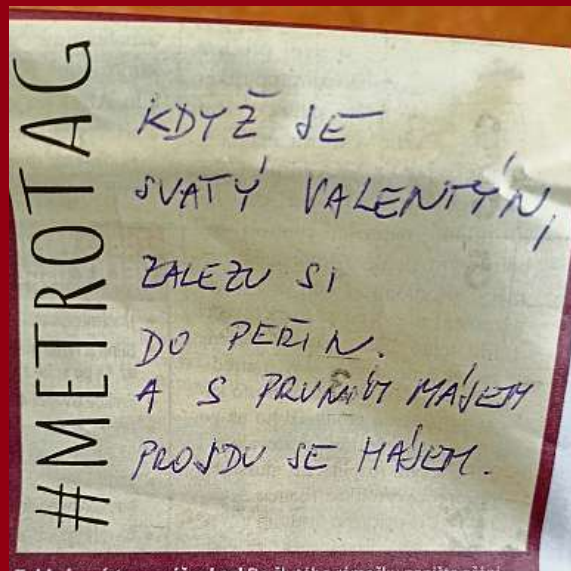 #METROTAG
KDYŽ JE
SVATÝ VALENTÝN,
ZALEZU SI
DO PEŘIN.
A S PRVNÍM MÁJEM
PROJDU SE HÁJEM.